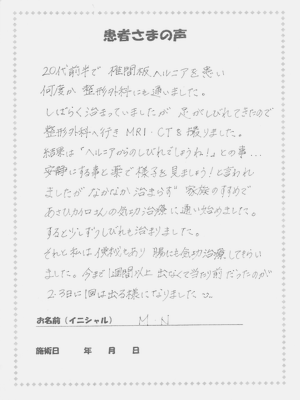 患者さまの声
20代前半で 椎間板ヘルニアを患い
何度か 整形外科にも通いました。
しばらく治まっていましたが 足がしびれてきたので
整形外科へ行き MRI・CTを撮りました。
結果は「ヘルニアからのしびれでしょうね!」との事…
安静にする事と薬で様子を見ましょう!と言われ
ましたが なかなか治まらず 家族のすすめで
あさひカイロさんの気功治療に通い始めました。
すると少しずつしびれも治まりました。
それと私は便秘もあり 腸にも気功治療してもらい
ました。今まで1週間以上 出なくて当り前だったのが
2.3日に1回は出る様になりました
お名前(イニシャル) M N
施術日 年 月 日